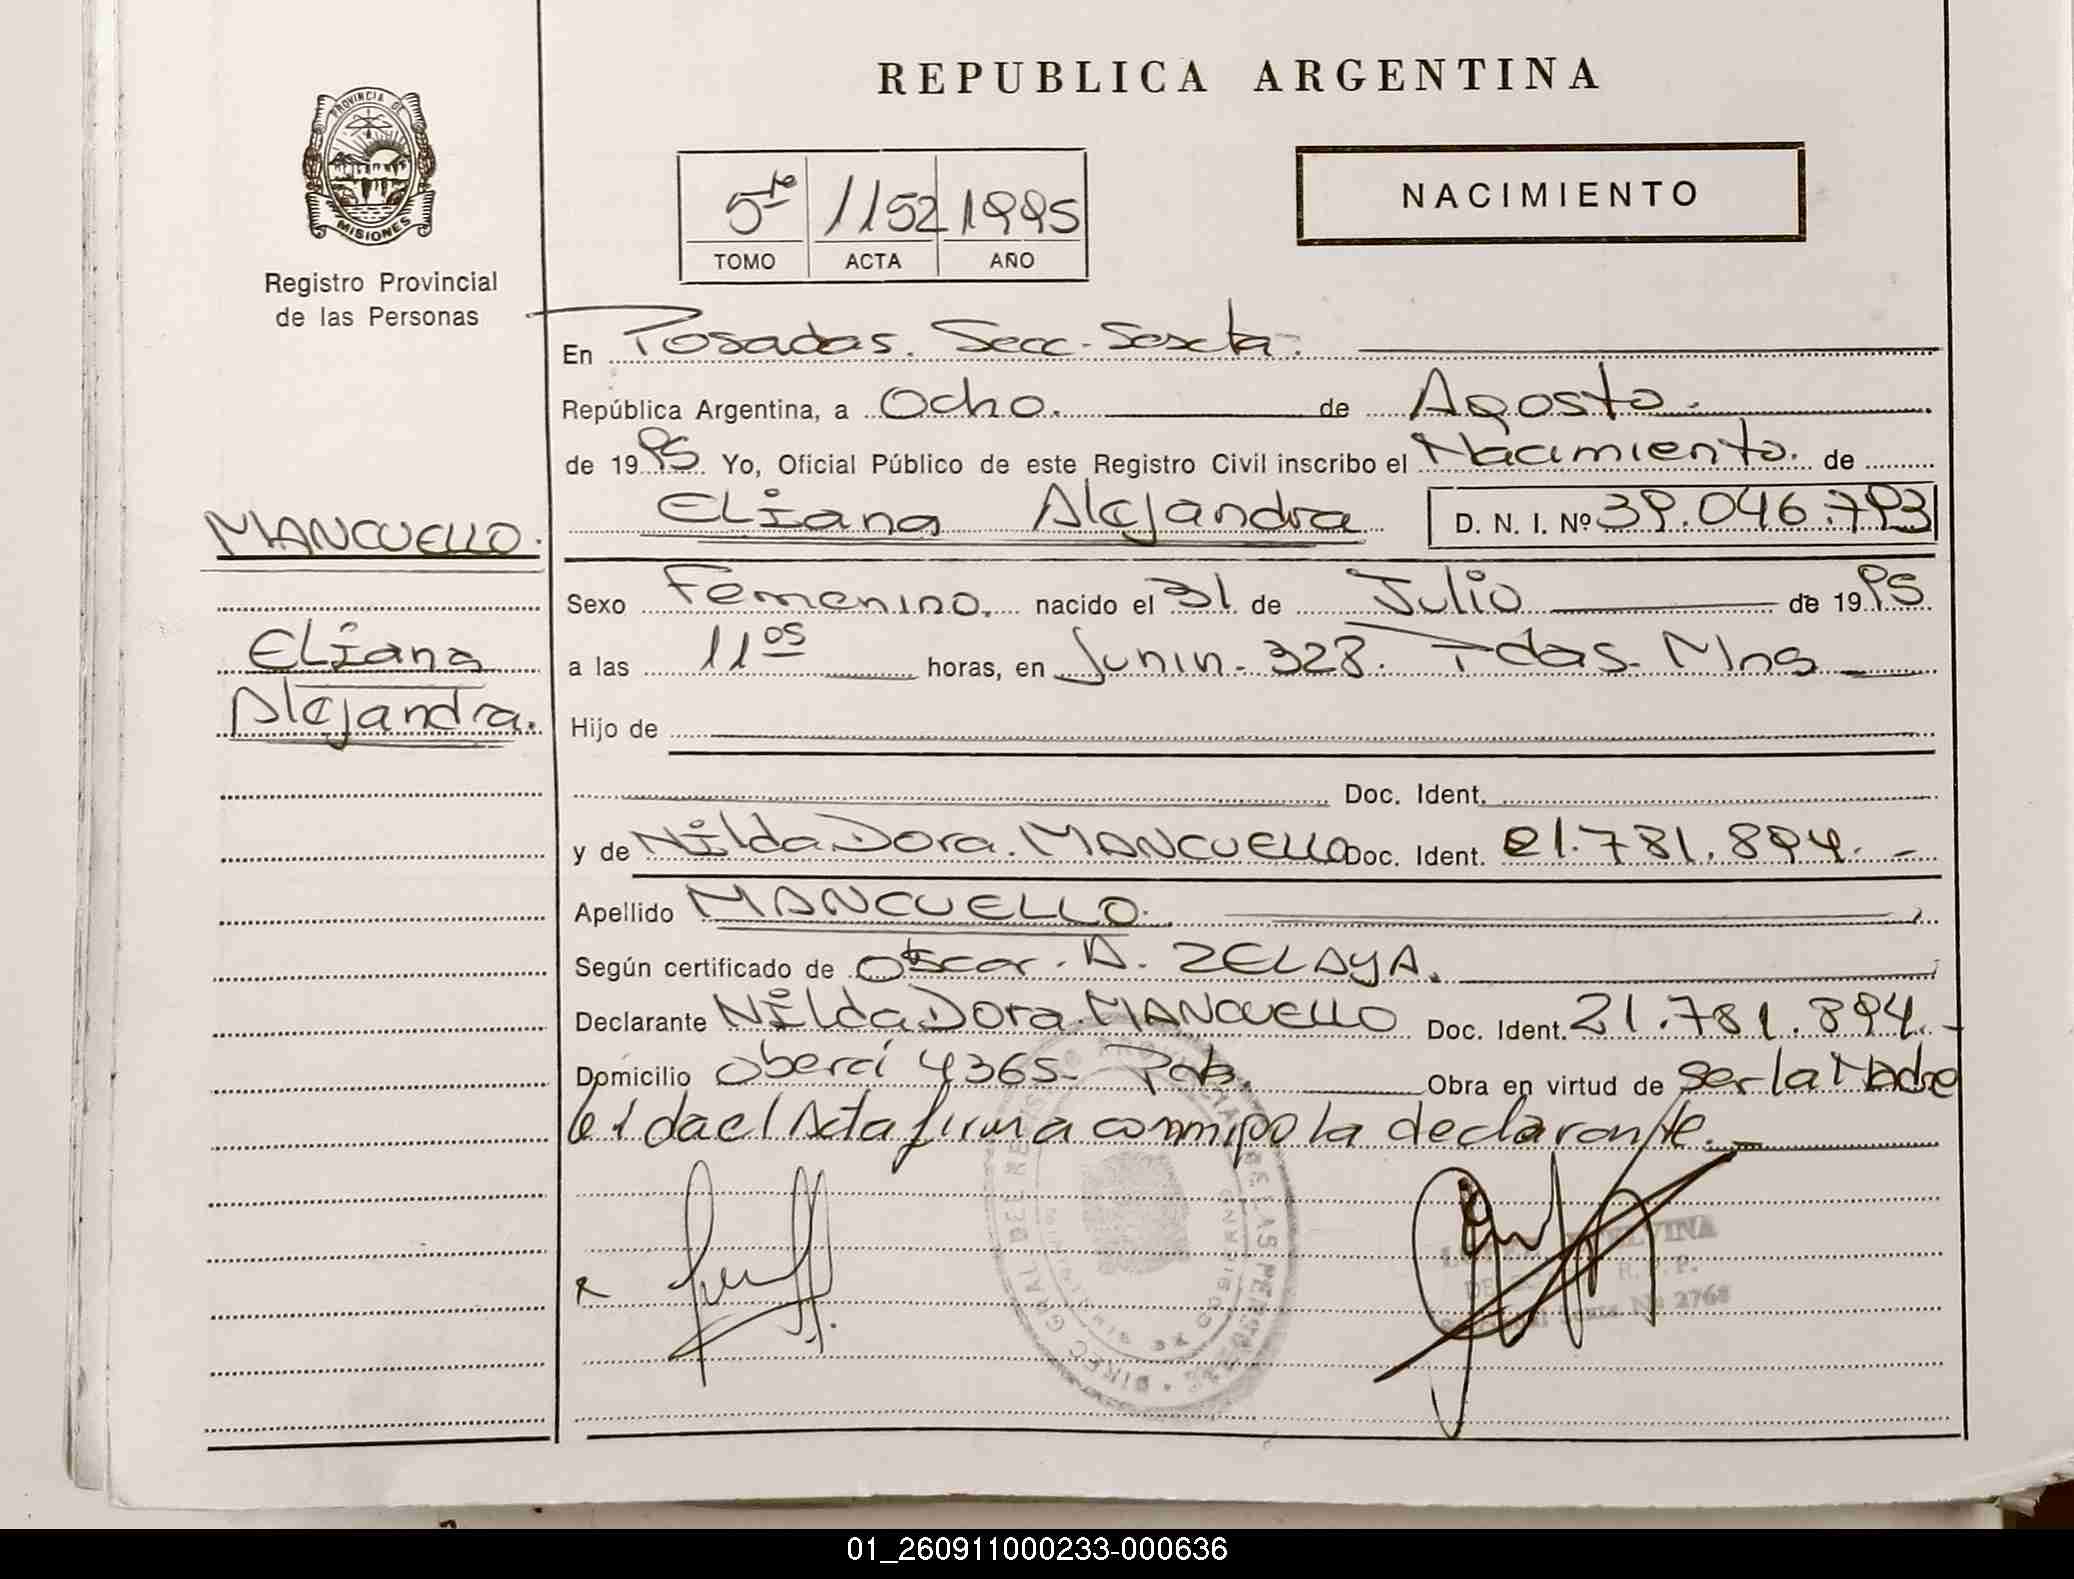 REPUBLICA ARGENTINA
PROVINCIA DE
MISIONES
Registro Provincial
de las Personas
5to 1152 1995
TOMO ACTA AÑO
NACIMIENTO
En Posadas. Secc. Sexta.
República Argentina, a Ocho. de Agosto.
de 1995 Yo, Oficial Público de este Registro Civil inscribo el Nacimiento. de
Eliana Alejandra D. N. I. Nº 39.046.793
MANCUELLO.
Eliana
Alejandra.
Sexo Femenino. nacido el 31 de Julio de 1995
a las 11 05 horas, en Junin. 328. Pdas. Mns
Hijo de
Doc. Ident.
y de Nilda Dora. MANCUELLO Doc. Ident. 21.781.894.
Apellido MANCUELLO.
Según certificado de Oscar. A. ZELAYA.
Declarante Nilda Dora. MANCUELLO Doc. Ident. 21.781.894.
Domicilio Oberá 4365. Obra en virtud de Ser la Madre
Leida el Acta firma conmigo la declarante.
R. P. P.
Nº 2768
01_260911000233-000636